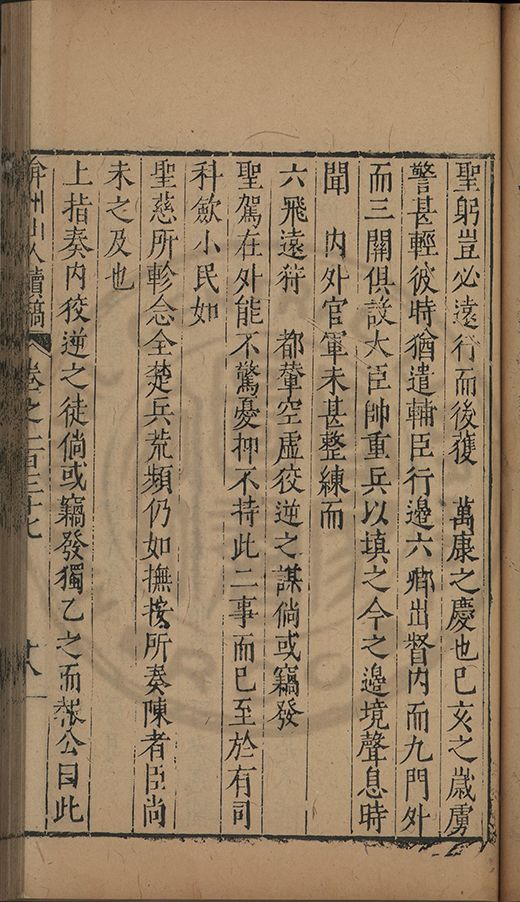 聖躬豈必遠行而後獲　萬康之慶也巳亥之歲虜
警甚輕彼時猶遣輔臣行邊六卿出督内而九門外
而三關俱設大臣帥重兵以填之今之邊境聲息時
聞　内外官軍未甚整練而
六飛遠狩　都輦空虚狡逆之謀倘或竊發
聖駕在外能不驚憂抑不持此二事而巳至於有司
科歛小民如
聖慈所軫念全楚兵荒頻仍如撫按所奏陳者臣尚
未之及也
上指奏内狡逆之徒倘或竊發獨乙之而報公曰此
弇州山人續稿　卷之一百三十七　廿八